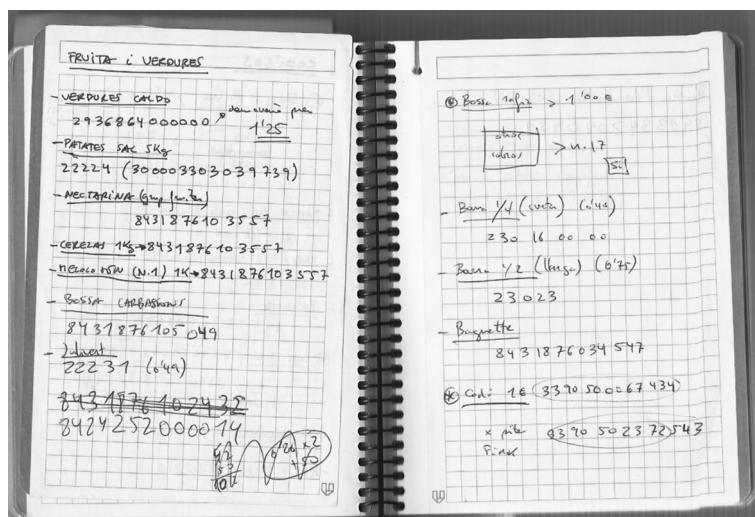 FRUITA i VERDURES
- VERDURES CALDO
2936864000000
1'25
- PATATES SAC 5Kg
22224 (300003303039739)
- NECTARINA
8431876103557
- CEREZAS 1Kg → 8431876103557
- (N.1) 1K → 8431876103557
- BOSSA CARBASSONS
8431876105049
- Julivert
22231 (0'49)
8431876102435
8424252000014
- Bossa > 1'00 €
> n. 17
Si
- Barra 1/4 (curta) (0'44)
230 16 00 00
- Barra 1/2 (llarga) (0'75)
23023
- Baguette
8431876034547
Codi 1€ 3390500067434
x
9390502372543